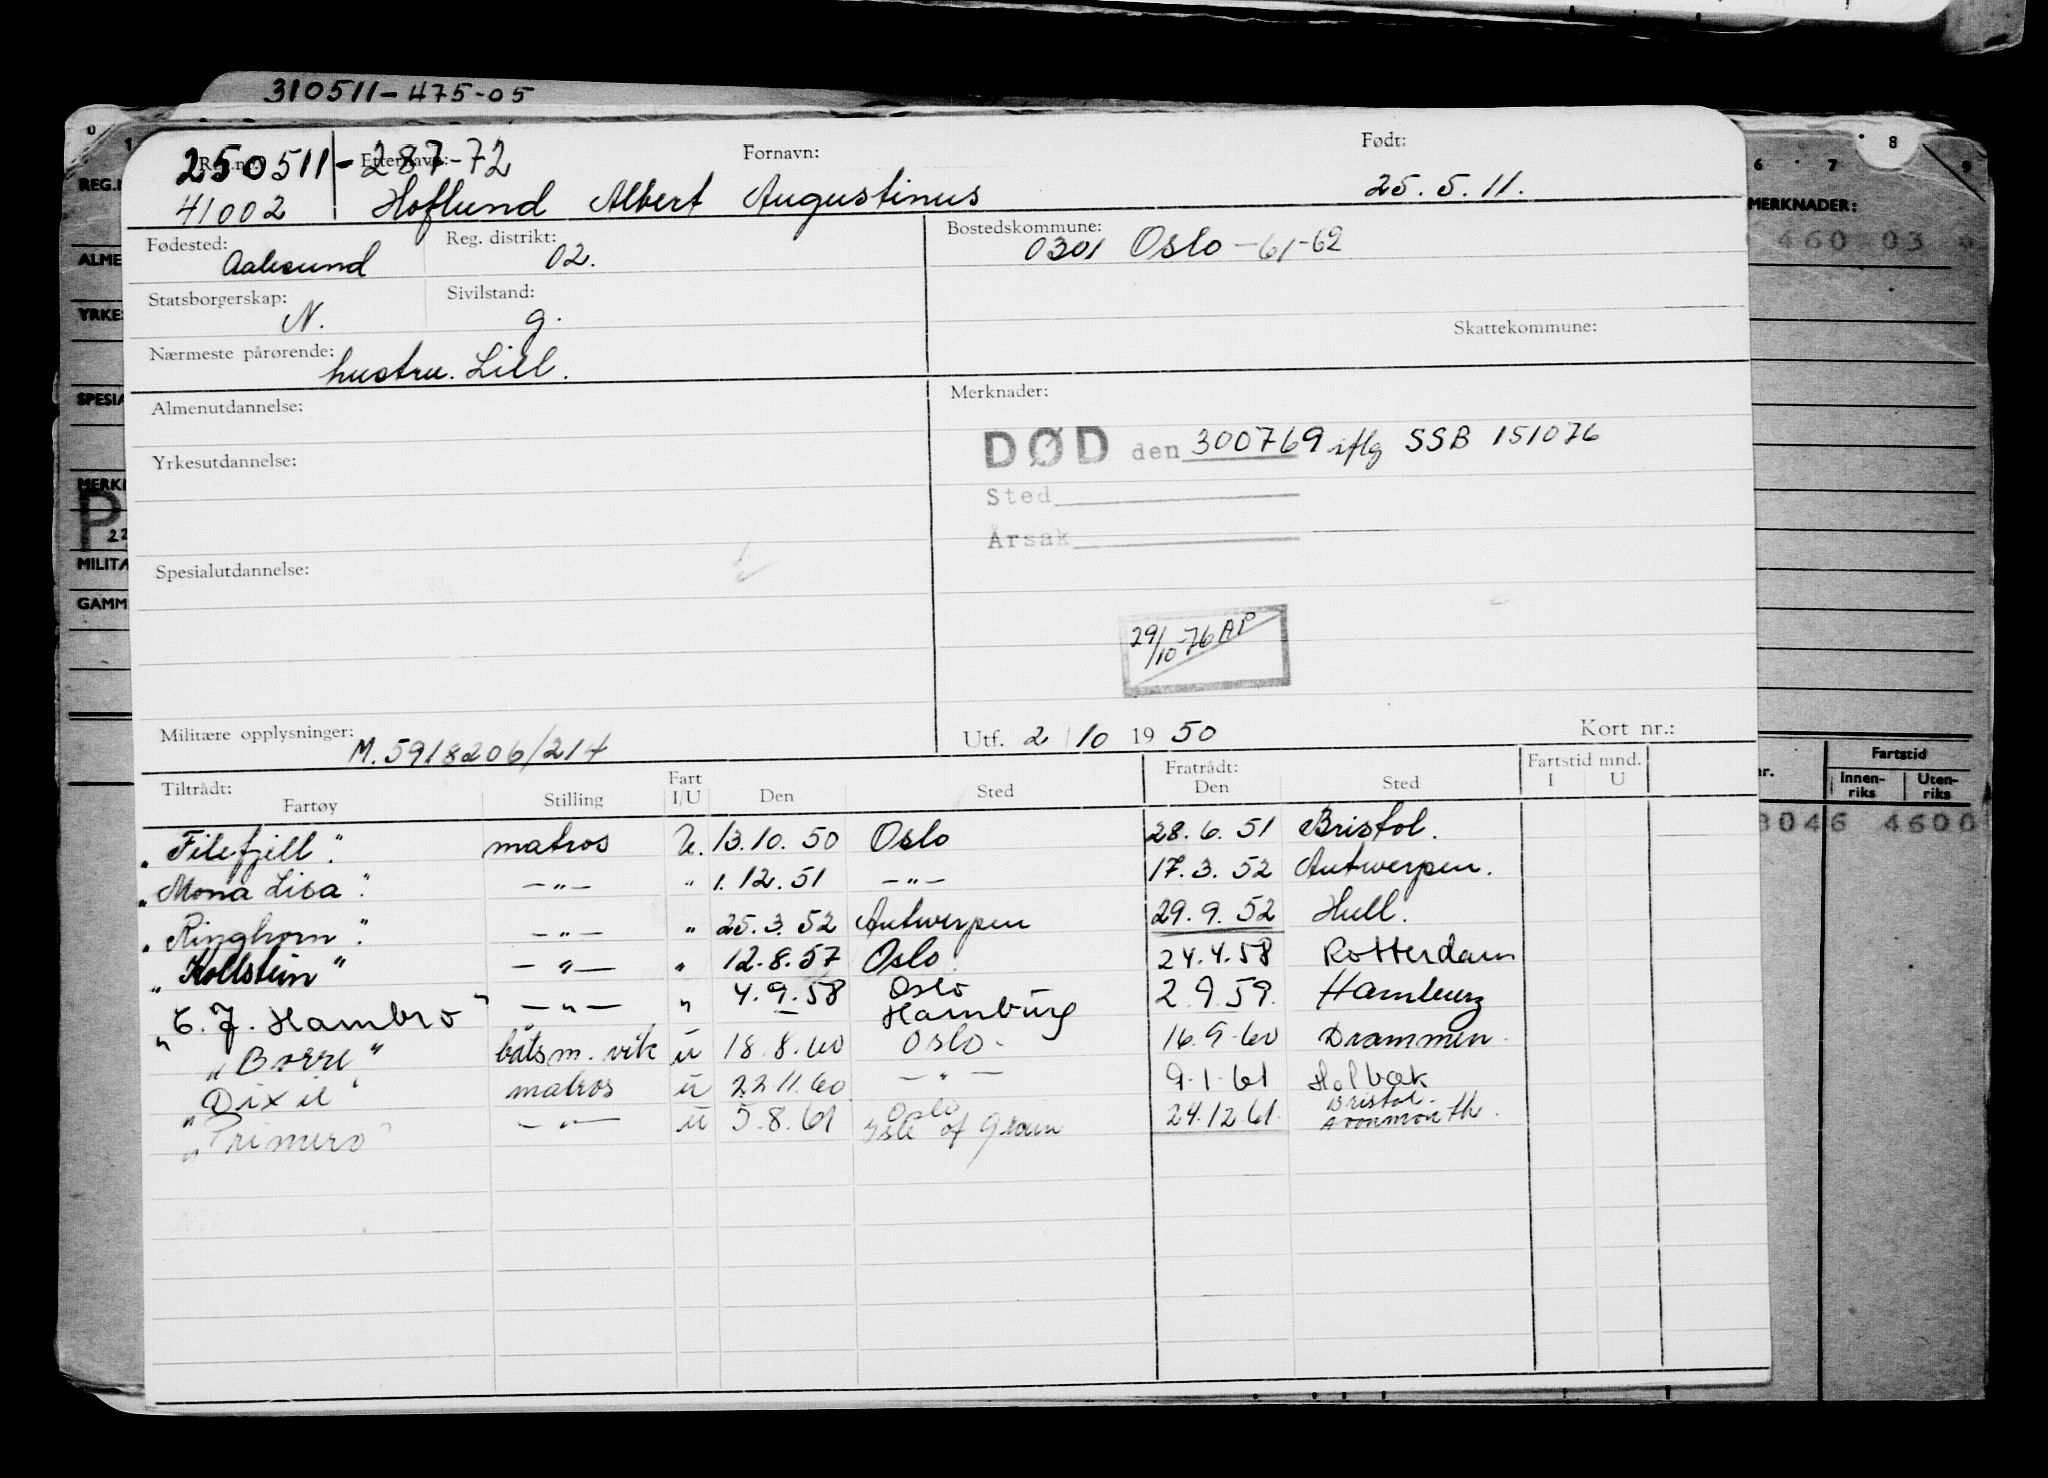 310511-475-05
250511-287-72
Reg.nr. Etternavn: Fornavn: Født:
41002 Hoflund Albert Augustinus 25. 5. 11.
Fødested: Aalesund Reg. distrikt: 02. Bostedskommune: 0301 Oslo -61-62
Statsborgerskap: N. Sivilstand: g. Skattekommune:
Nærmeste pårørende: hustru. Lill.
Almenutdannelse: Merknader:
DØD den 300769 iflg SSB 151076
Yrkesutdannelse:
Sted
Årsak
Spesialutdannelse:
29/10-76 AP
Militære opplysninger: M.5918206/214 Utf. 2/10 1950 Kort nr.:
Tiltrådt: Fratrådt: Fartstid mnd.
Fartøy Stilling Fart I/U Den Sted Den Sted I U
"Filefjell". matros U. 13.10.50 Oslo 28.6.51 Bristol.
"Mona Lisa". -"- " 1.12.51 -"- 17.3.52 Antwerpen.
"Ringhorn". -"- " 25.3.52 Antwerpen 29.9.52 Hull.
"Kollstein" -"- " 12.8.57 Oslo. 24.4.58 Rotterdam
"C. J. Hambro" -"- " 4.9.58 Oslo Hamburg 2.9.59. Hamburg
"Borre" båtsm. vik u 18.8.60 Oslo. 16.9.60 Drammen.
"Dixie" matros u 22.11.60 -"- 9.1.61 Holbæk
"Primero" -"- u 5.8.61 Oslo Isle of Grain 24.12.61. Bristol. Avonmouth.
REG.N
ALME
YRKES
SPESIA
MERKN
P
22
MILITÆ
GAMM
0 1 6 7 8 9
MERKNADER:
460 03
nr. Fartstid
Innenriks Utenriks
3046 4600